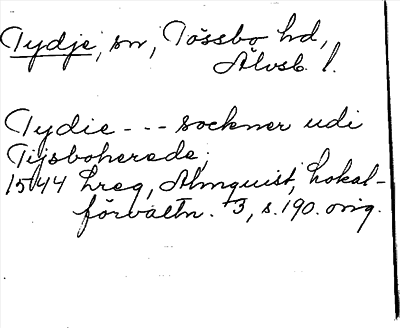 Tydje, sn, Tössbo hd,
Älvsb. l.
Tydie --- sockner udi
Tijsboherede;
1544 Lreg, Almquist, Lokal-
förvaltn. 3, s. 190. orig.